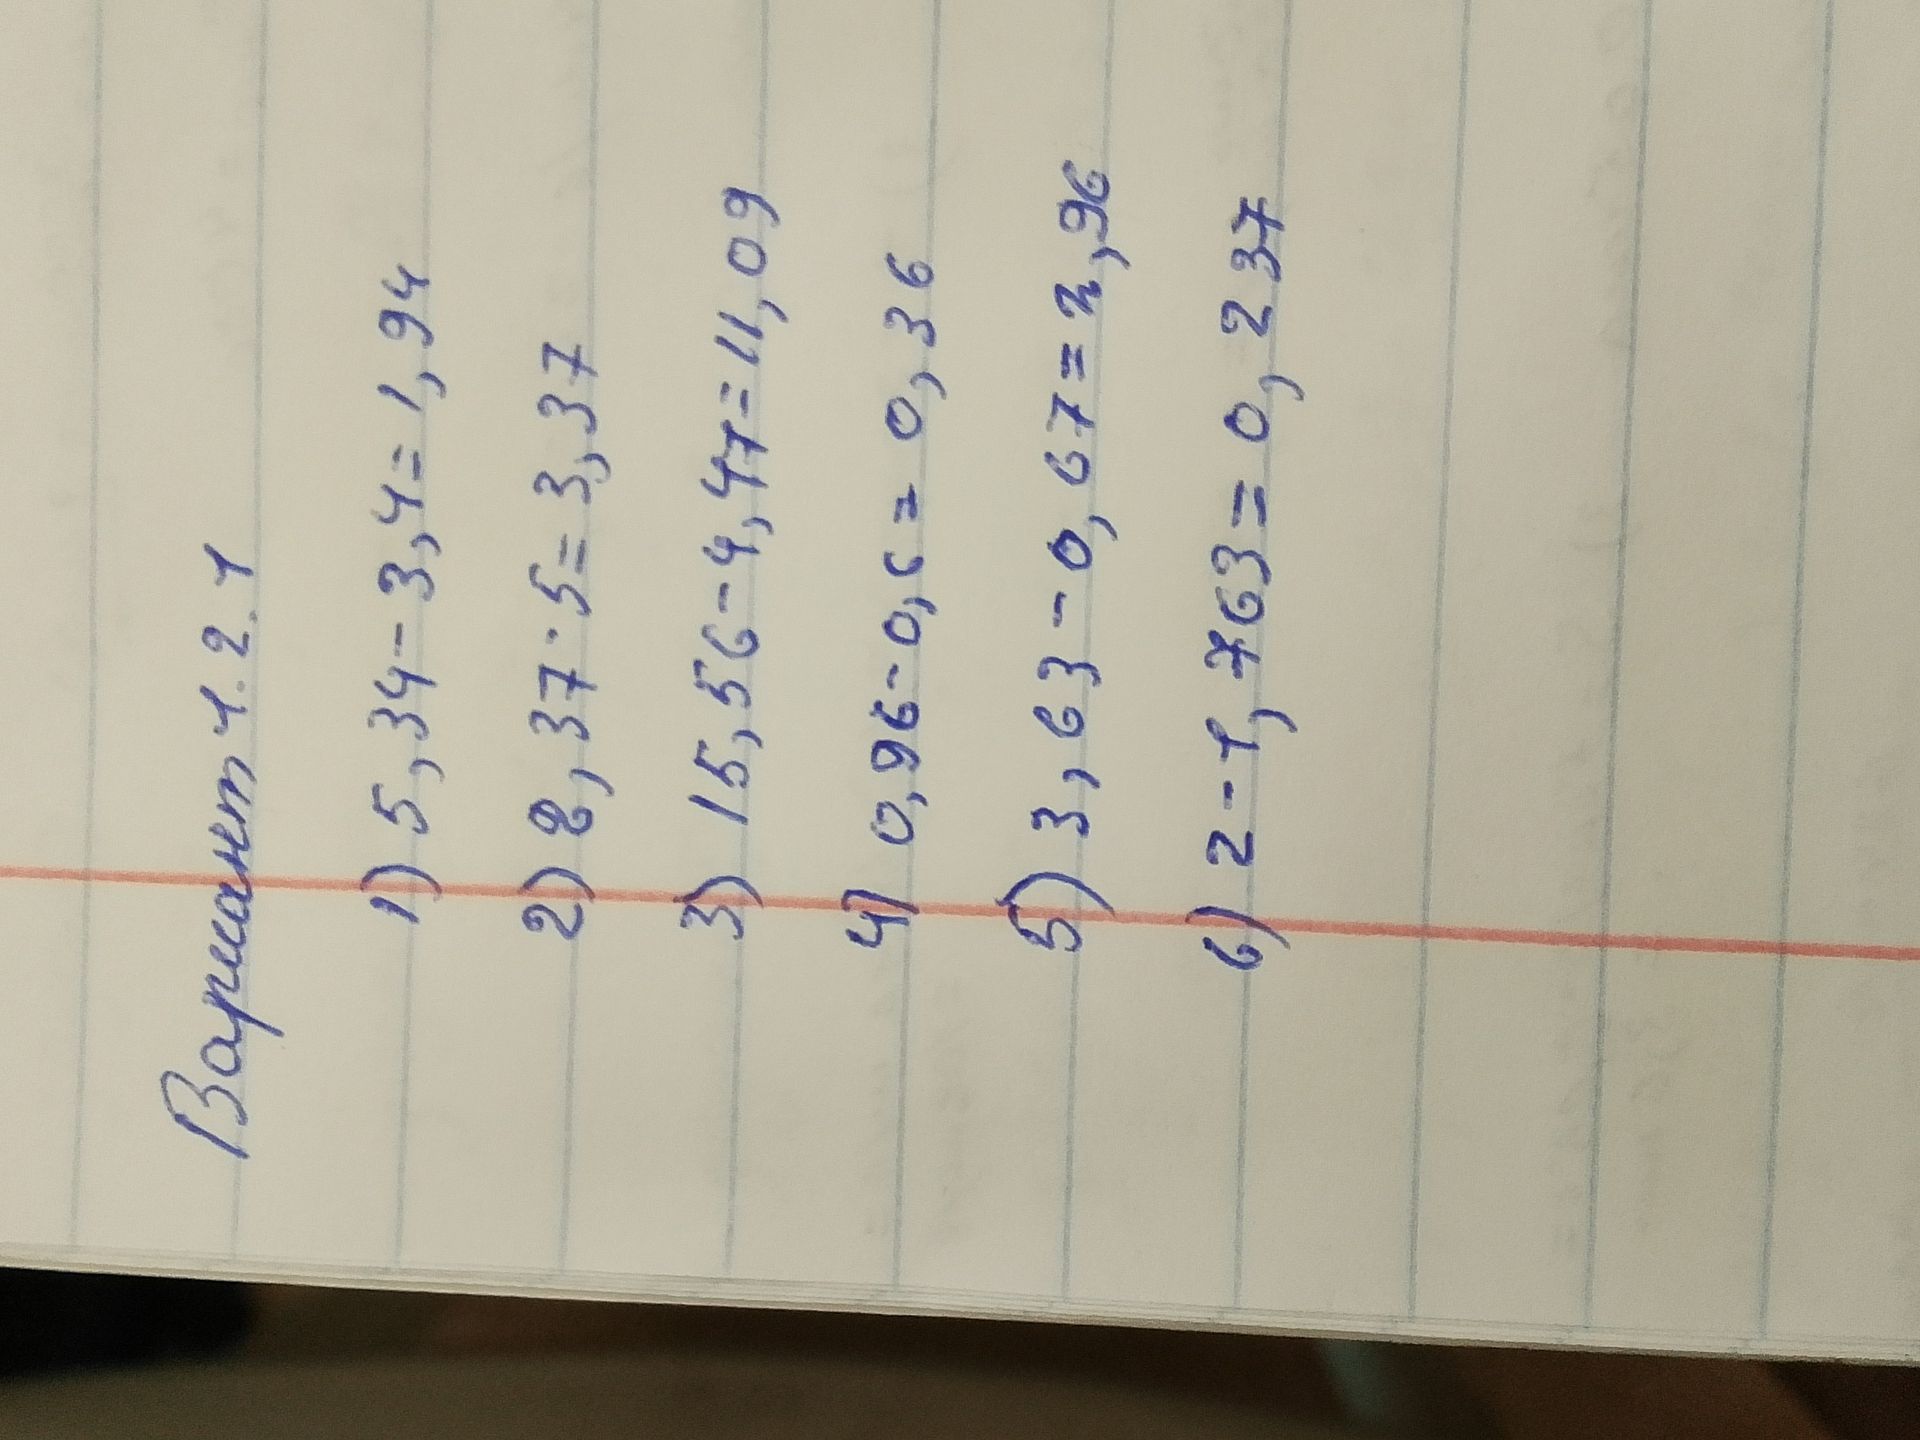 Вариант 1.2.1
1) 5,34-3,4=1,94
2) 8,37·5=3,37
3) 15,56-4,47=11,09
4) 0,96-0,6=0,36
5) 3,63-0,67=2,96
6) 2-1,763=0,237